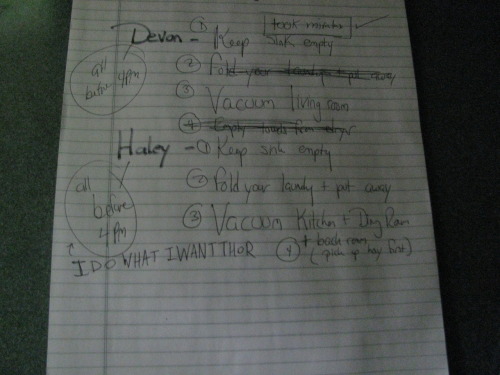 ① took monitor
Devon - Keep sink empty
all before 4pm
② Fold your laundry + put away
③ Vacuum living room
④ Empty towels from dryer
Haley - ① Keep sink empty
② Fold your laundy + put away
all before 4pm
③ Vacuum Kitchen + Ding Room
④ + back room
(pick up hay first)
I DO WHAT I WANT THOR